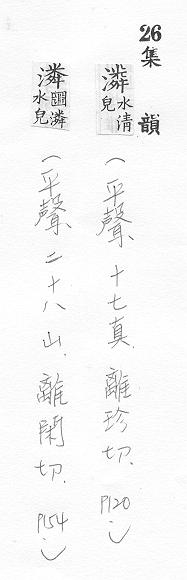 26集韻
潾水清皃(平聲、十七真、離珍切、P120)
潾𡈥潾水皃(平聲二十八山、離閑切、P154)